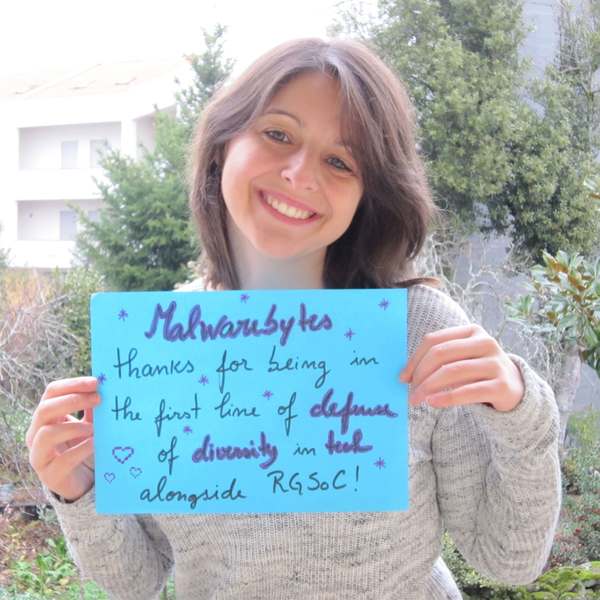 Malwarebytes
thanks for being in
the first line of defense
of diversity in tech
alongside RGSoC!